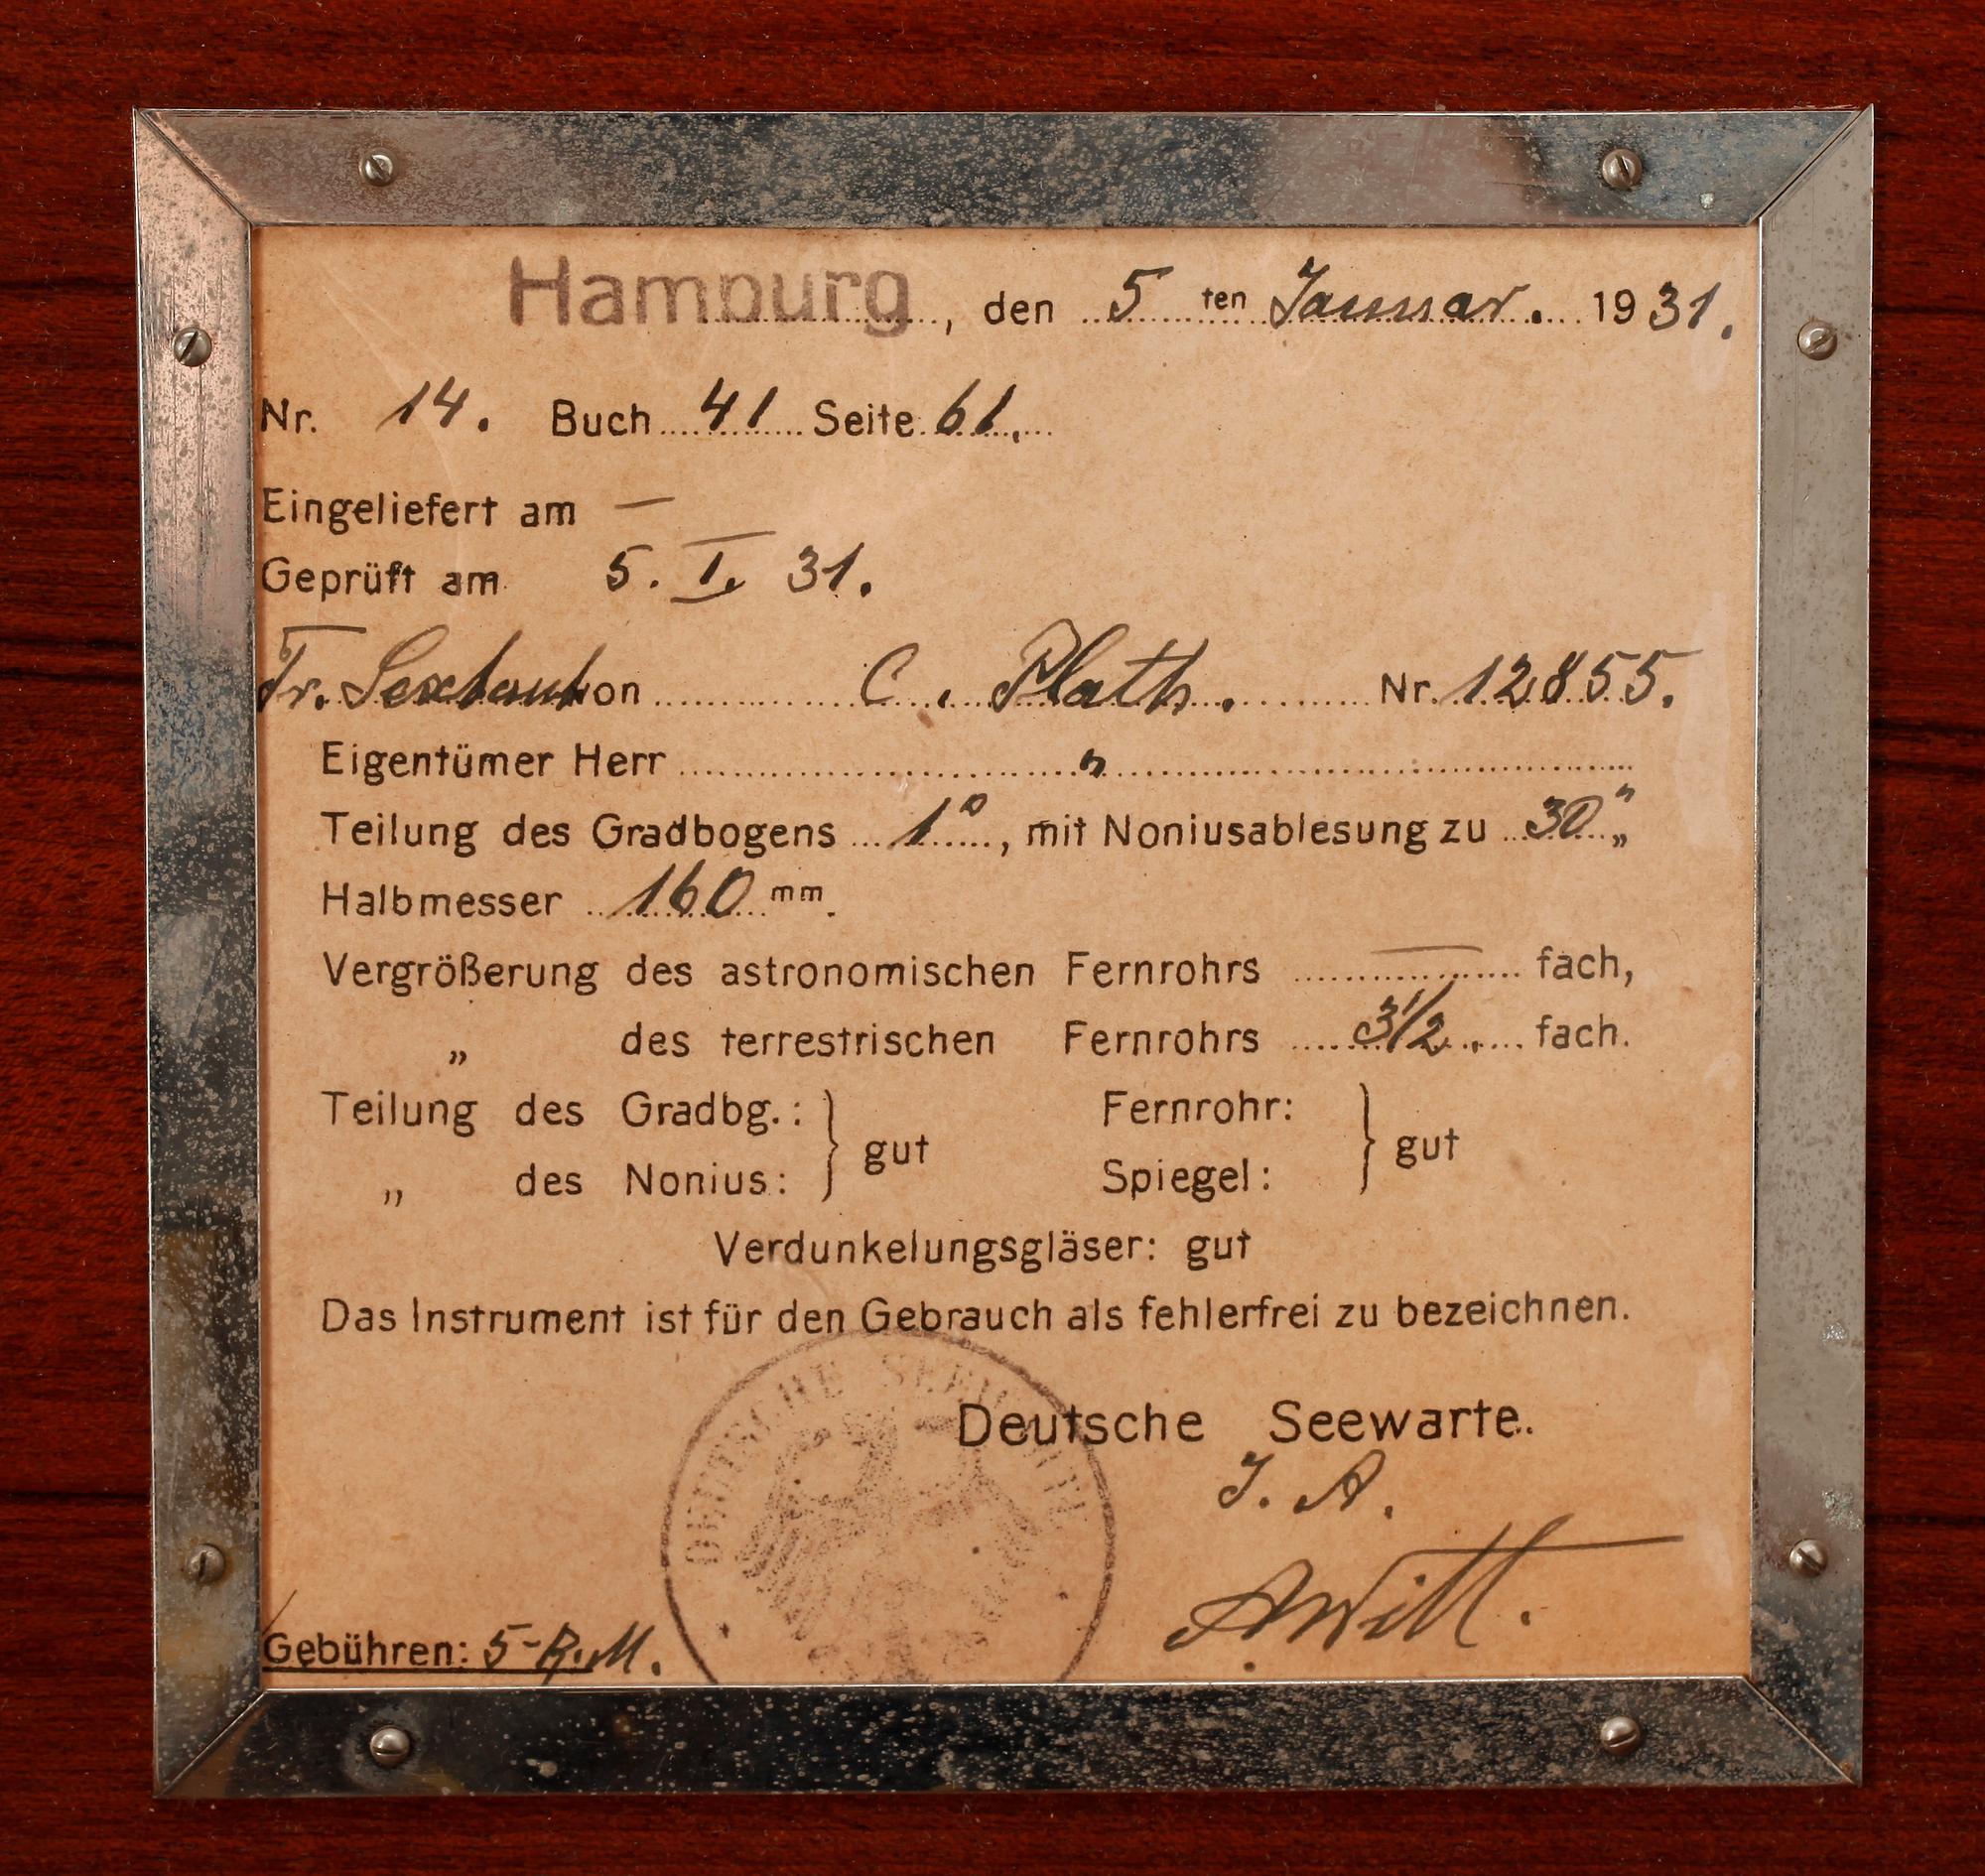 Hamburg, den 5ten Januar. 1931.
Nr. 14. Buch 41 Seite 61.
Eingeliefert am —
Geprüft am 5. I. 31.
Tr. Sextant von C. Plath. Nr. 12855.
Eigentümer Herr "
Teilung des Gradbogens 1°, mit Noniusablesung zu 30"„
Halbmesser 160 mm.
Vergrößerung des astronomischen Fernrohrs — fach,
„ des terrestrischen Fernrohrs 3 1/2. fach.
Teilung des Gradbg.: } gut Fernrohr: } gut
„ des Nonius: Spiegel:
Verdunkelungsgläser: gut
Das Instrument ist für den Gebrauch als fehlerfrei zu bezeichnen.
DEUTSCHE SEEWARTE
Deutsche Seewarte.
I. A.
AWitt.
Gebühren: 5-R.M.